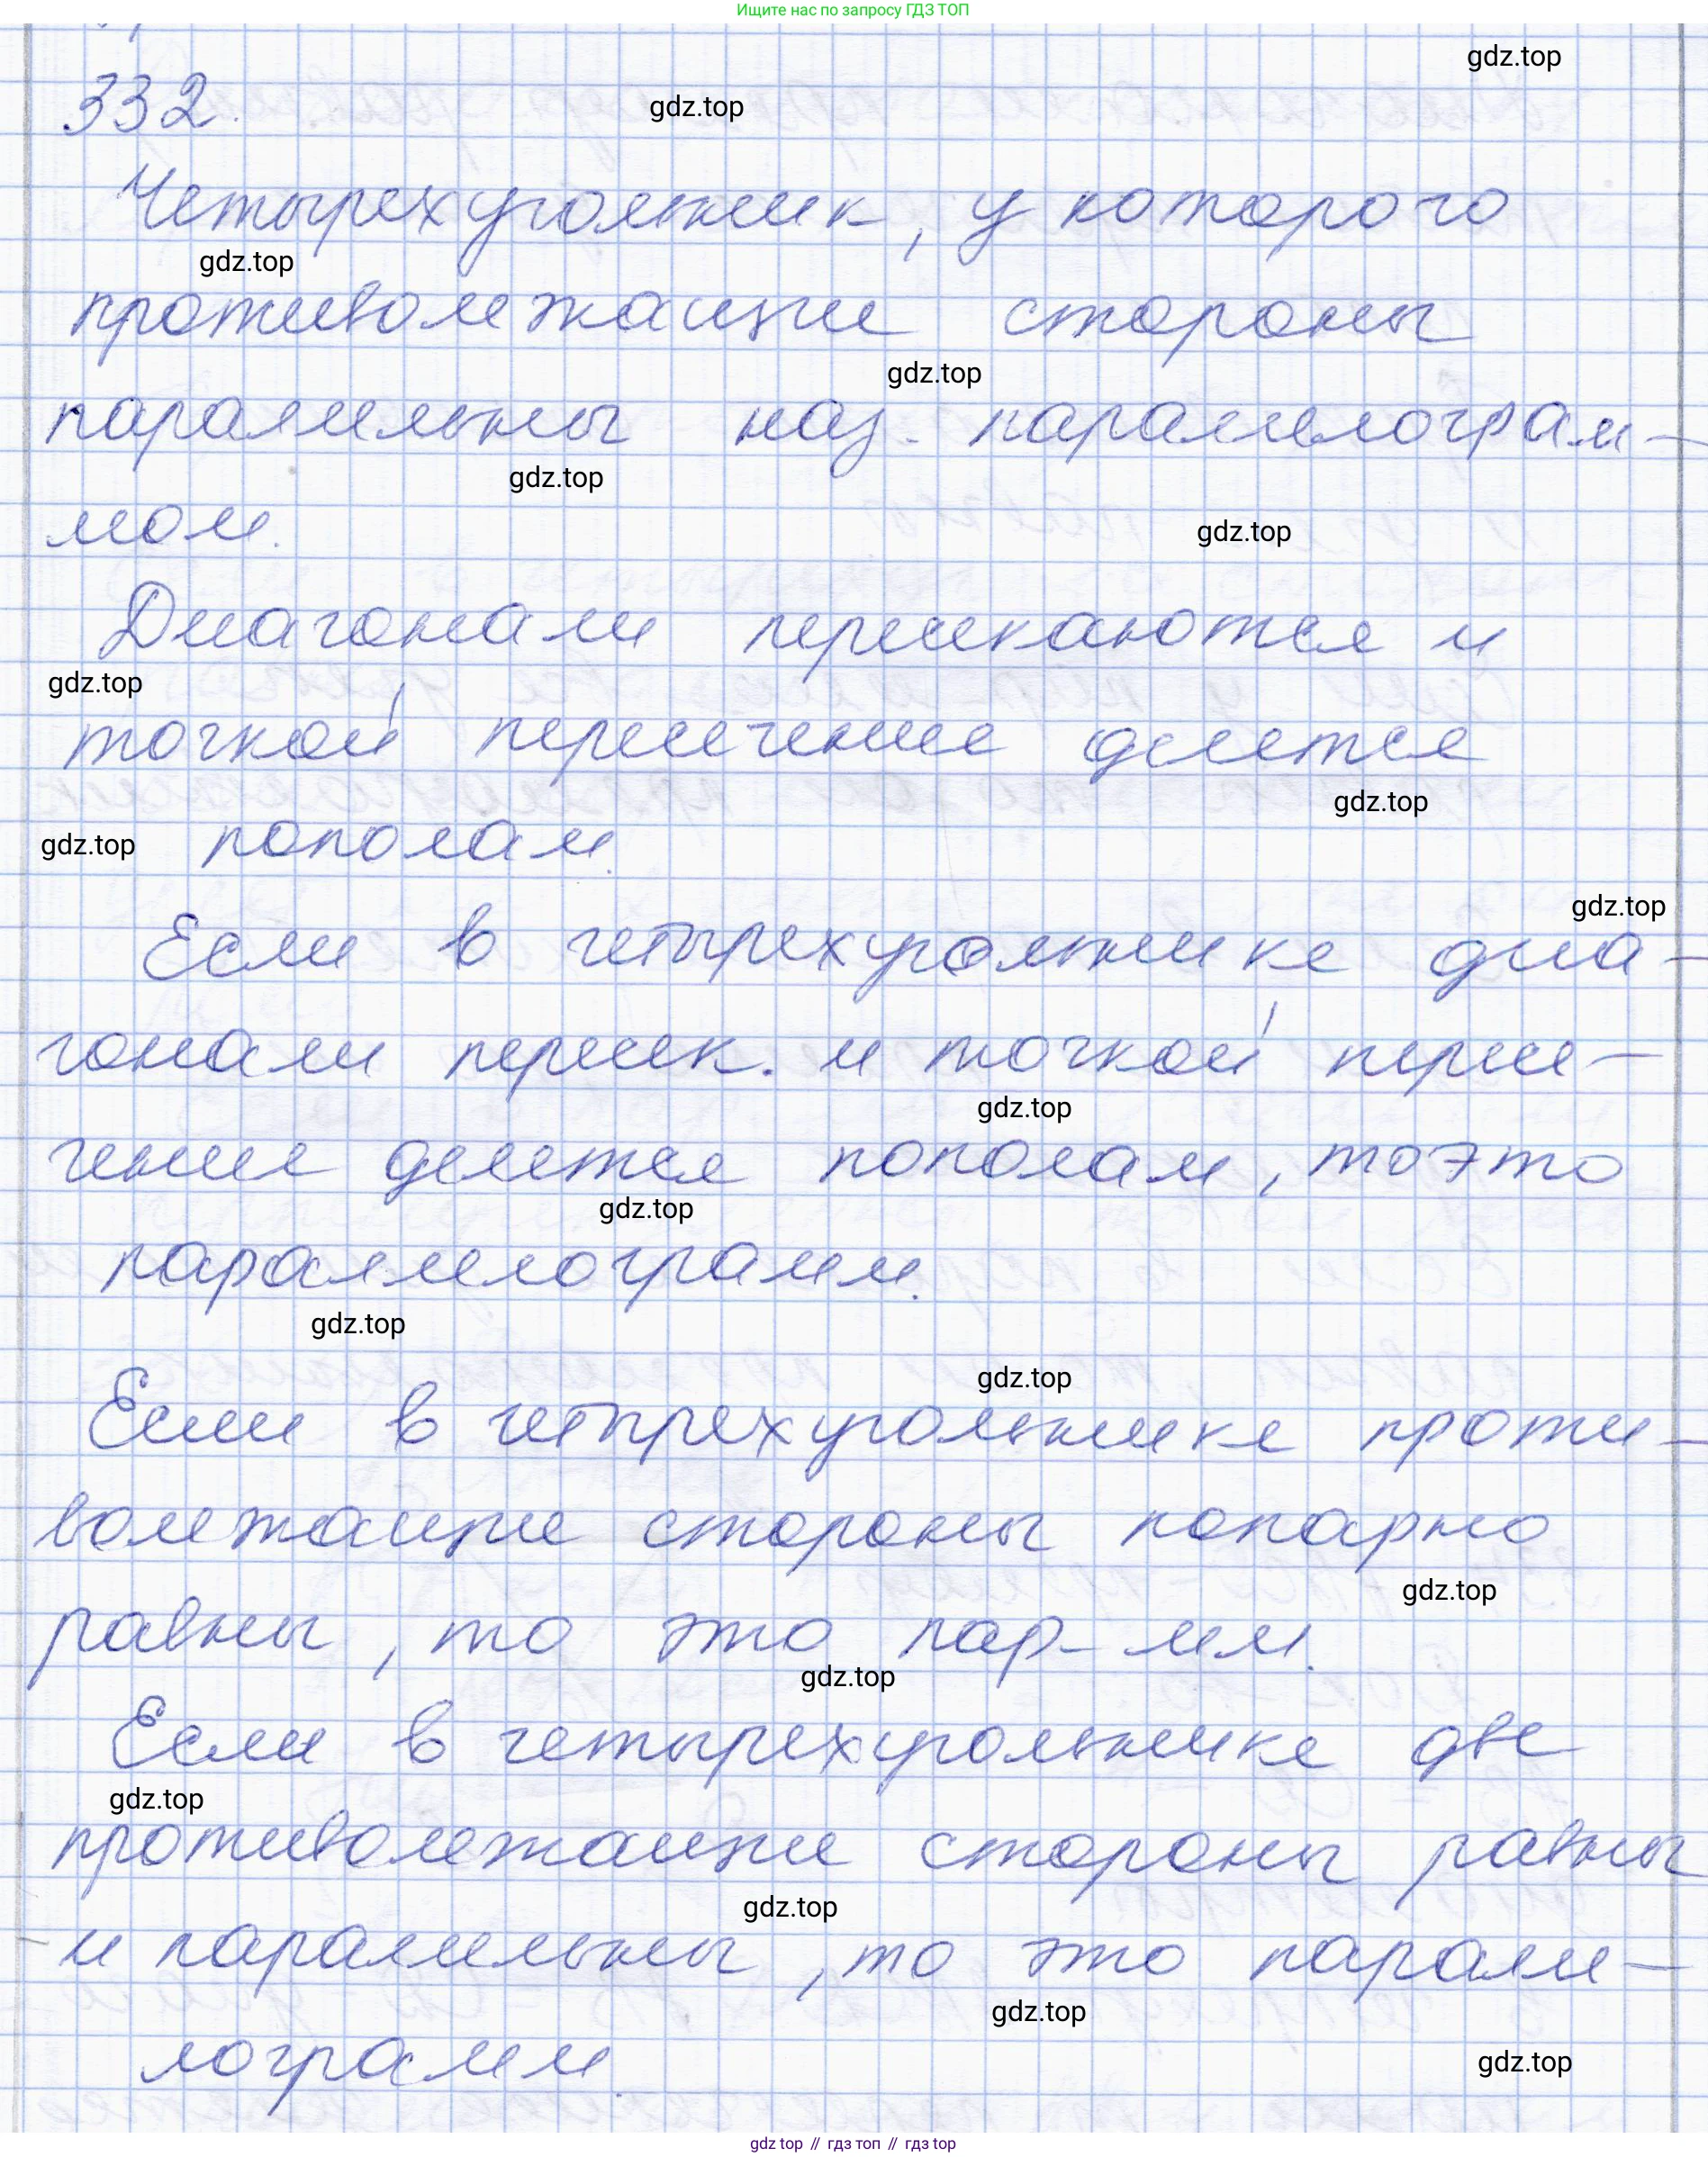 Ищите нас по запросу ГДЗ ТОП
gdz.top
332.
gdz.top
Четырехугольник, у которого
gdz.top
противолежащие стороны
gdz.top
паралельны наз. паралелограм-
gdz.top
мом.
gdz.top
Диагонали пересекаются и
gdz.top
точкой пересечение делется
gdz.top
gdz.top пополам.
gdz.top
Если в четырехугольнике диа-
гонали пересек. и точкой пересе-
gdz.top
чение делется пополам, то это
gdz.top
паралелограмм.
gdz.top
gdz.top
Если в четырехугольнике проти-
волежащие стороны попарно
gdz.top
равны, то это пар-мм.
gdz.top
Если в четырехугольнике две
gdz.top
противолежащие стороны равны
gdz.top
и паралельны, то это парале-
gdz.top
лограмм.
gdz.top
gdz top // гдз топ // гдз top